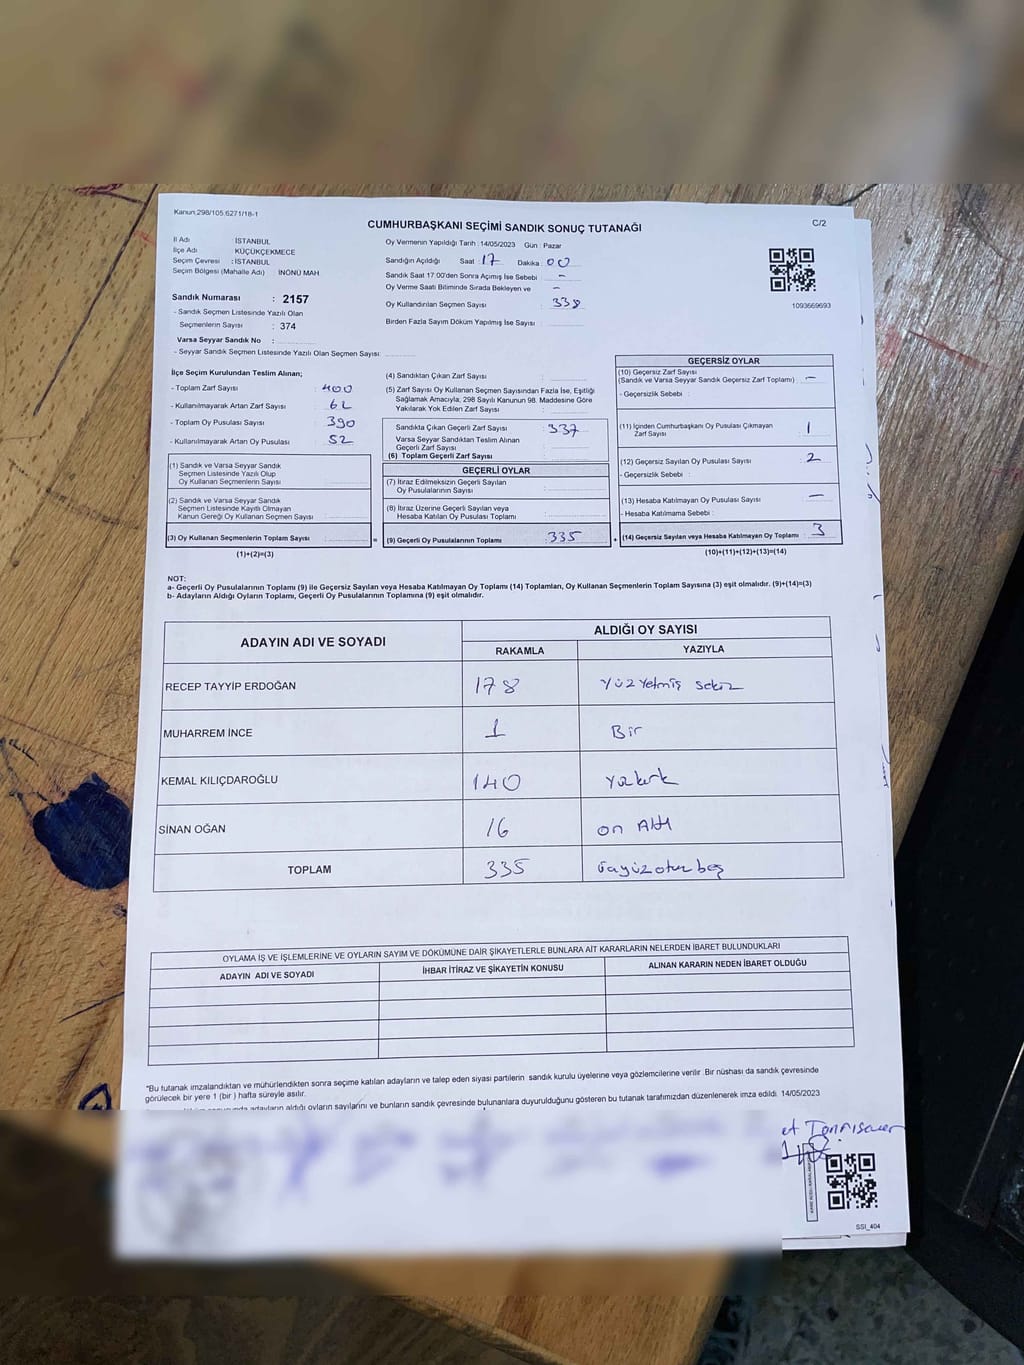 Kanun;298/105.6271/18-1
C/2
CUMHURBAŞKANI SEÇİMİ SANDIK SONUÇ TUTANAĞI
İl Adı : İSTANBUL
İlçe Adı : KÜÇÜKÇEKMECE
Seçim Çevresi : İSTANBUL
Seçim Bölgesi (Mahalle Adı) : İNÖNÜ MAH
Sandık Numarası : 2157
- Sandık Seçmen Listesinde Yazılı Olan
Seçmenlerin Sayısı : 374
Varsa Seyyar Sandık No :
- Seyyar Sandık Seçmen Listesinde Yazılı Olan Seçmen Sayısı :
Oy Vermenin Yapıldığı Tarih : 14/05/2023 Gün : Pazar
Sandığın Açıldığı Saat : 17 Dakika : 00
Sandık Saat 17.00'den Sonra Açımış İse Sebebi : -
Oy Verme Saati Bitiminde Sırada Bekleyen ve -
Oy Kullandırılan Seçmen Sayısı : 338
Birden Fazla Sayım Döküm Yapılmış İse Sayısı :
1093669693
İlçe Seçim Kurulundan Teslim Alınan;
- Toplam Zarf Sayısı : 400
- Kullanılmayarak Artan Zarf Sayısı : 62
- Toplam Oy Pusulası Sayısı : 390
- Kullanılmayarak Artan Oy Pusulası : 52
(1) Sandık ve Varsa Seyyar Sandık
Seçmen Listesinde Yazılı Olup
Oy Kullanan Seçmenlerin Sayısı :
(2) Sandık ve Varsa Seyyar Sandık
Seçmen Listesinde Kayıtlı Olmayan
Kanun Gereği Oy Kullanan Seçmen Sayısı :
(3) Oy Kullanan Seçmenlerin Toplam Sayısı : =
(1)+(2)=(3)
(4) Sandıktan Çıkan Zarf Sayısı :
(5) Zarf Sayısı Oy Kullanan Seçmen Sayısından Fazla İse, Eşitliği
Sağlamak Amacıyla, 298 Sayılı Kanunun 98. Maddesine Göre
Yakılarak Yok Edilen Zarf Sayısı :
Sandıkta Çıkan Geçerli Zarf Sayısı : 337
Varsa Seyyar Sandıktan Teslim Alınan
Geçerli Zarf Sayısı :
(6) Toplam Geçerli Zarf Sayısı :
GEÇERLİ OYLAR
(7) İtiraz Edilmeksizin Geçerli Sayılan
Oy Pusulalarının Sayısı :
(8) İtiraz Üzerine Geçerli Sayılan veya
Hesaba Katılan Oy Pusulası Toplamı :
(9) Geçerli Oy Pusulalarının Toplamı : 335 +
GEÇERSİZ OYLAR
(10) Geçersiz Zarf Sayısı
(Sandık ve Varsa Seyyar Sandık Geçersiz Zarf Toplamı) : -
- Geçersizlik Sebebi :
(11) İçinden Cumhurbaşkanı Oy Pusulası Çıkmayan
Zarf Sayısı : 1
(12) Geçersiz Sayılan Oy Pusulası Sayısı : 2
- Geçersizlik Sebebi :
(13) Hesaba Katılmayan Oy Pusulası Sayısı : -
- Hesaba Katılmama Sebebi :
(14) Geçersiz Sayılan veya Hesaba Katılmayan Oy Toplamı : 3
(10)+(11)+(12)+(13)=(14)
NOT:
a- Geçerli Oy Pusulalarının Toplamı (9) ile Geçersiz Sayılan veya Hesaba Katılmayan Oy Toplamı (14) Toplamları, Oy Kullanan Seçmenlerin Toplam Sayısına (3) eşit olmalıdır. (9)+(14)=(3)
b- Adayların Aldığı Oyların Toplamı, Geçerli Oy Pusulalarının Toplamına (9) eşit olmalıdır.
ADAYIN ADI VE SOYADI
ALDIĞI OY SAYISI
RAKAMLA YAZIYLA
RECEP TAYYİP ERDOĞAN 178 Yüzyetmiş sekiz
MUHARREM İNCE 1 Bir
KEMAL KILIÇDAROĞLU 140 Yüzkırk
SİNAN OĞAN 16 on Altı
TOPLAM 335 üçyüzotuz beş
OYLAMA İŞ VE İŞLEMLERİNE VE OYLARIN SAYIM VE DÖKÜMÜNE DAİR ŞİKAYETLERLE BUNLARA AİT KARARLARIN NELERDEN İBARET BULUNDUKLARI
ADAYIN ADI VE SOYADI İHBAR İTİRAZ VE ŞİKAYETİN KONUSU ALINAN KARARIN NEDEN İBARET OLDUĞU
*Bu tutanak imzalandıktan ve mühürlendikten sonra seçime katılan adayların ve talep eden siyasi partilerin sandık kurulu üyelerine veya gözlemcilerine verilir .Bir nüshası da sandık çevresinde
görülecek bir yere 1 (bir ) hafta süreyle asılır.
adayların aldığı oyların sayılarını ve bunların sandık çevresinde bulunanlara duyurulduğunu gösteren bu tutanak tarafımızdan düzenlenerek imza edildi. 14/05/2023
SSI_404